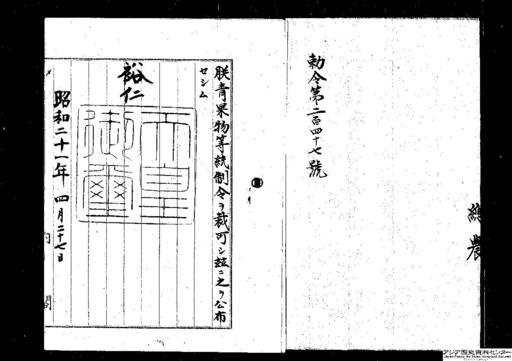 總農
勅令第二百四十七號
朕青果物等統制令ヲ裁可シ玆ニ之ヲ公布
セシム
裕仁
天皇御璽
昭和二十一年四月二十七日
内閣
アジア歴史資料センター
Japan Center for Asian Historical Records